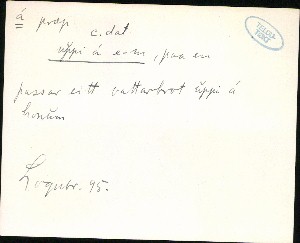 á prep
c. dat
uppi á e-m, paa en
passar eitt vattarbrot uppi á
honum
Lognbr. 95.